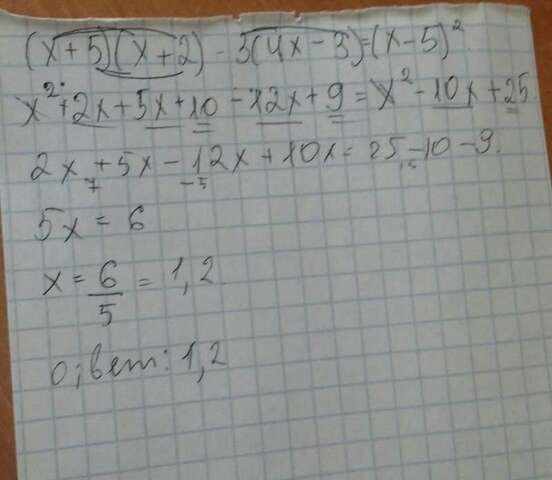 (x+5)(x+2) - 3(4x-3)=(x-5)²
x²+2x+5x+10-12x+9=x²-10x+25
2x+5x-12x+10x=25-10-9.
7 -5
5x=6
x=6/5=1,2
ответ:1,2